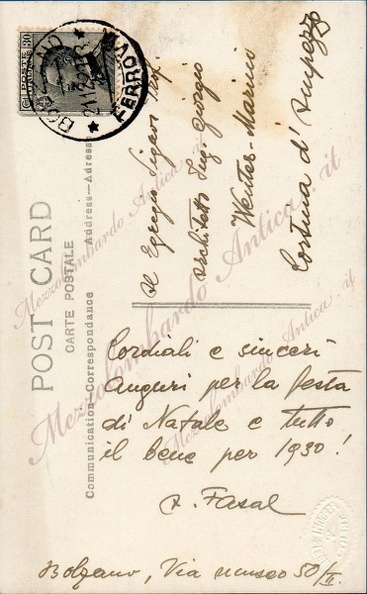 POSTE ITALIANE
C. 30
BOLZANO
FERROVIA
POST CARD
CARTE POSTALE
Address—Adresse
Communication—Correspondance
Al Egregio Signor Prof.
architetto Ing. Giorgio
Wenter-Marini
Cortina d'Ampezzo
Cordiali e sinceri
auguri per la festa
di Natale e tutto
il bene per 1930!
A. Fasal
Bolzano, Via museo 50/II.
Mezzolombardo Antica.it
Mezzolombardo Antica.it
Mezzolombardo Antica.it